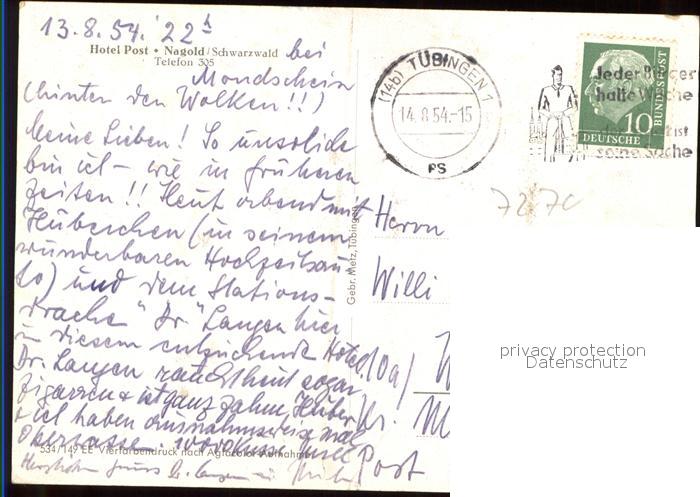 13.8.54. 22h
Hotel Post • Nagold/Schwarzwald
Telefon 305
bei
Mondschein
(hinter den Wolken!!)
Meine Lieben! So unsolide
bin ich – wie in früheren
Zeiten!! Heut abend mit
Hüberchen (in seinem
wunderbaren Hochzeitsau-
to) und dem Stations-
drache "Dr." Langen hier
in diesem entzückende Hotel.
Dr. Langen raucht heut sogar
Zigarren & ist ganz zahm, Hüber
& ich haben ausnahmsweise mal
Oberwasser.
534/149 EE Vierfarbendruck nach Agfacolor-Aufnahme
Herzlichen Gruss
Gebr. Metz, Tübingen
(14b) TÜBINGEN 1
14.8.54.-15
ps
Jeder Bürger
halte Wache
ist
seine Sache
DEUTSCHE
BUNDESPOST
10
7270
Herrn
Willi
10a) W
Kr. M
Post
privacy protection
Datenschutz